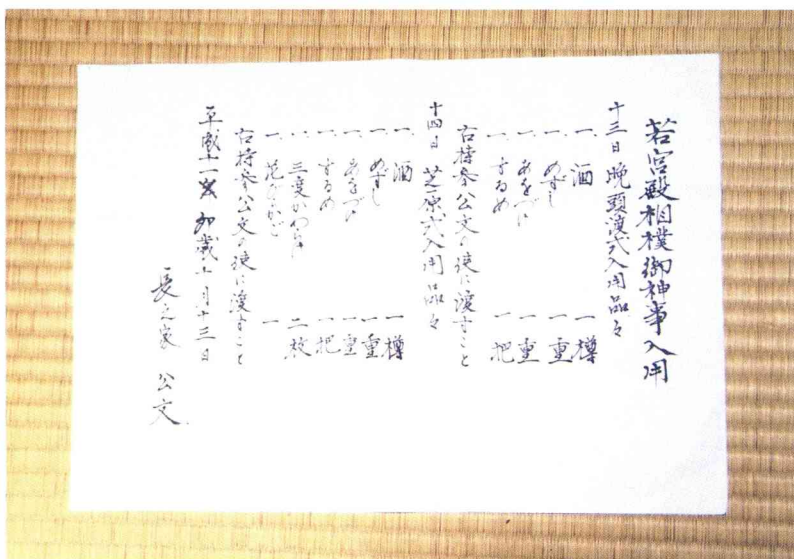 若宮殿相撲御神事入用
十三日晩頭渡式入用品々
一 酒 一樽
一 めすし 一重
一 あをづけ 一重
一 するめ 一把
右持参公文の使に渡すこと
十四日 芝原式入用品々
一 酒 一樽
一 めすし 一重
一 あをづけ 一重
一 するめ 一把
一 三度かわらけ 二枚
一 花びらがど 一
右持参公文の使に渡すこと
平成十一年 卯歳十月十三日
長之家 公文